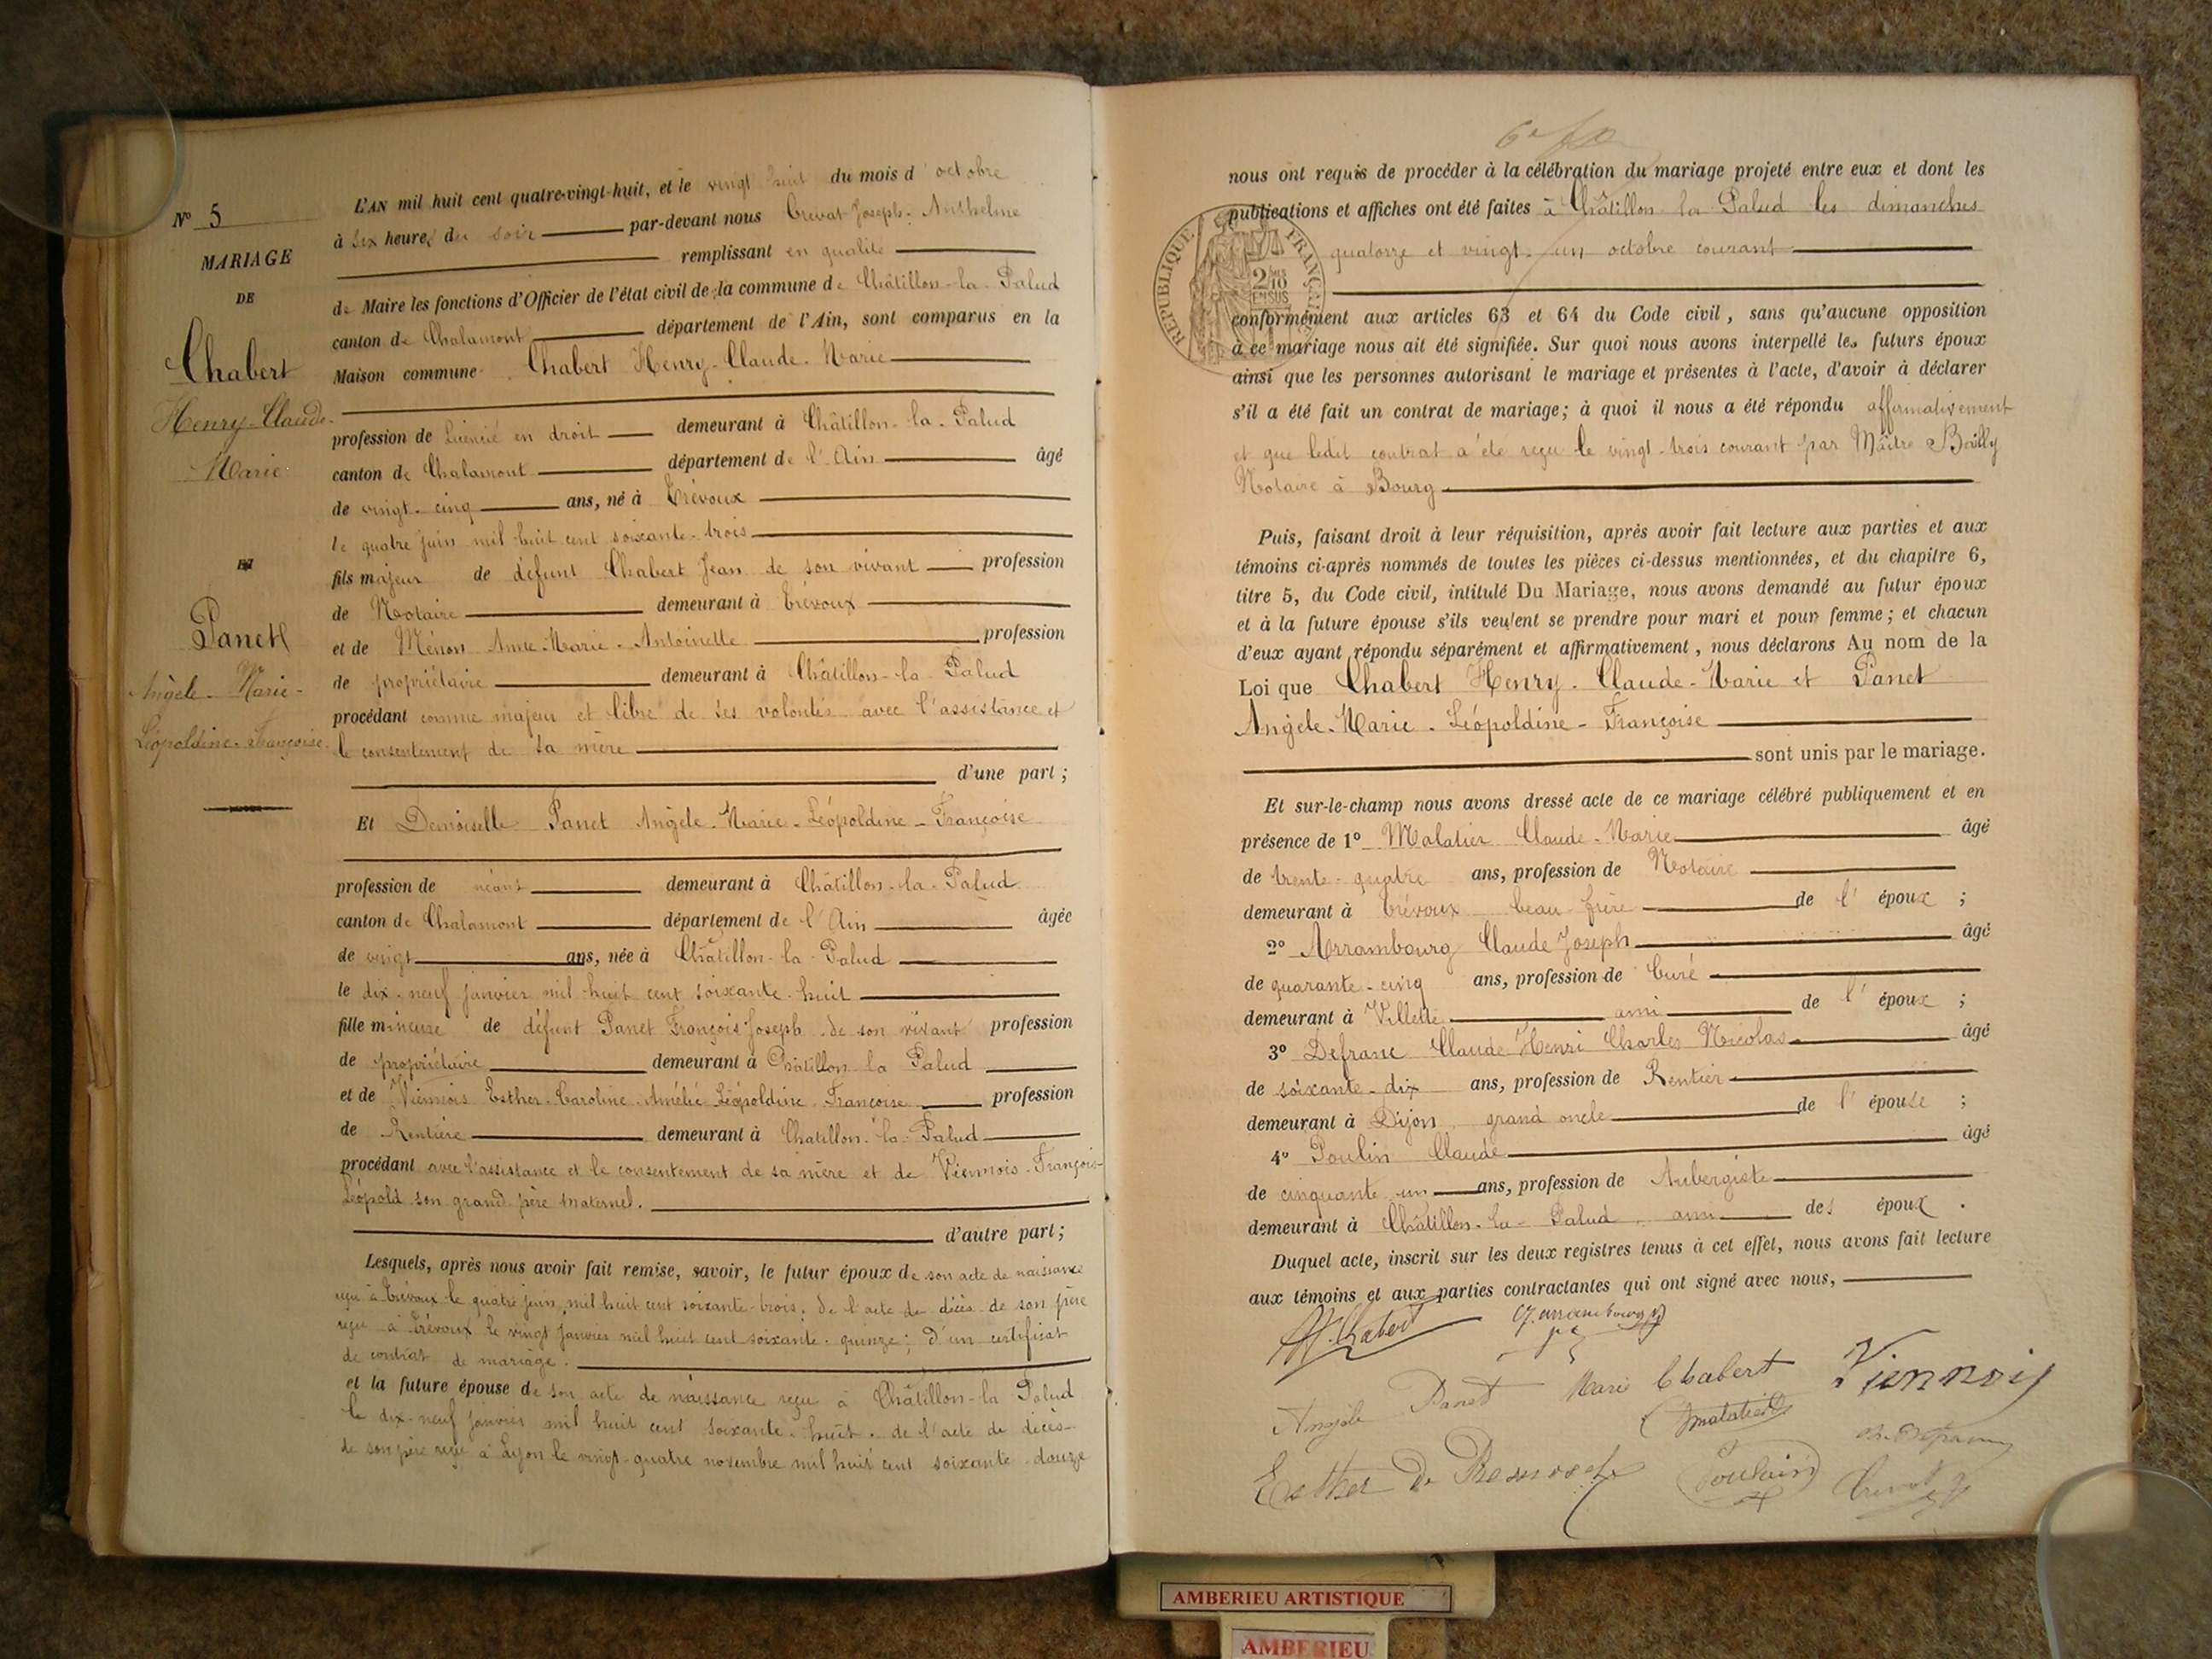 N° 5
MARIAGE
DE
Chabert
Henry-Claude-
Marie
ET
Panet
Angèle-Marie-
Léopoldine-Françoise.
L'AN mil huit cent quatre-vingt-huit, et le vingt huit du mois d'octobre
à six heures du soir par-devant nous Crevat Joseph-Anthelme
remplissant en qualité
de Maire les fonctions d'Officier de l'état civil de la commune de Châtillon-la-Palud
canton de Chalamont département de l'Ain, sont comparus en la
Maison commune Chabert Henry-Claude-Marie
profession de Licencié en droit demeurant à Châtillon-la-Palud
canton de Chalamont département de l'Ain âgé
de vingt-cinq ans, né à Trévoux
le quatre juin mil huit cent soixante-trois
fils majeur de défunt Chabert Jean de son vivant profession
de Notaire demeurant à Trévoux
et de Ménon Anne-Marie-Antoinette profession
de propriétaire demeurant à Châtillon-la-Palud
procédant comme majeur et libre de ses volontés avec l'assistance et
le consentement de sa mère
d'une part ;
Et Demoiselle Panet Angèle-Marie-Léopoldine-Françoise
profession de néant demeurant à Châtillon-la-Palud
canton de Chalamont département de l'Ain âgée
de vingt ans, née à Châtillon-la-Palud
le dix-neuf janvier mil huit cent soixante-huit
fille mineure de défunt Panet François-Joseph de son vivant profession
de propriétaire demeurant à Châtillon la Palud
et de Viennois Esther-Caroline-Amélie-Léopoldine-Françoise profession
de Rentière demeurant à Chatillon-la-Palud
procédant avec l'assistance et le consentement de sa mère et de Viennois-François-
Léopold son grand père maternel.
d'autre part ;
Lesquels, après nous avoir fait remise, savoir, le futur époux de son acte de naissance
reçu à Trévoux le quatre juin mil huit cent soixante-trois, de l'acte de décès de son père
reçu à Trévoux le vingt janvier mil huit cent soixante-quinze ; d'un certificat
de contrat de mariage.
et la future épouse de son acte de naissance reçu à Châtillon-la Palud
le dix-neuf janvier mil huit cent soixante-huit. de l'acte de décès
de son père reçu à Lyon le vingt-quatre novembre mil huit cent soixante-douze
nous ont requis de procéder à la célébration du mariage projeté entre eux et dont les
publications et affiches ont été faites à Châtillon-la-Palud les dimanches
quatorze et vingt-un octobre courant
RÉPUBLIQUE FRANÇAISE
2/10
EN SUS
conformément aux articles 63 et 64 du Code civil, sans qu'aucune opposition
à ce mariage nous ait été signifiée. Sur quoi nous avons interpellé les futurs époux
ainsi que les personnes autorisant le mariage et présentes à l'acte, d'avoir à déclarer
s'il a été fait un contrat de mariage ; à quoi il nous a été répondu affirmativement
et que ledit contrat a été reçu le vingt-trois courant par Maître Bailly
Notaire à Bourg
Puis, faisant droit à leur réquisition, après avoir fait lecture aux parties et aux
témoins ci-après nommés de toutes les pièces ci-dessus mentionnées, et du chapitre 6,
titre 5, du Code civil, intitulé Du Mariage, nous avons demandé au futur époux
et à la future épouse s'ils veulent se prendre pour mari et pour femme ; et chacun
d'eux ayant répondu séparément et affirmativement, nous déclarons Au nom de la
Loi que Chabert Henry-Claude-Marie et Panet
Angèle-Marie-Léopoldine-Françoise
sont unis par le mariage.
Et sur-le-champ nous avons dressé acte de ce mariage célébré publiquement et en
présence de 1° Malatier Claude-Marie âgé
de trente-quatre ans, profession de Notaire
demeurant à Trévoux beau-frère de l'époux ;
2° Arrambourg Claude Joseph âgé
de quarante-cinq ans, profession de Curé
demeurant à Villette ami de l'époux ;
3° Defranc Claude-Henri Charles Nicolas âgé
de soixante-dix ans, profession de Rentier
demeurant à Dijon grand oncle de l'épouse ;
4° Poulin Claude âgé
de cinquante-un ans, profession de Aubergiste
demeurant à Châtillon-la-Palud, ami des époux.
Duquel acte, inscrit sur les deux registres tenus à cet effet, nous avons fait lecture
aux témoins et aux parties contractantes qui ont signé avec nous,
H. Chabert CJ. arrambourg
Angèle Panet Marie Chabert Viennois
Malatier
Esther De Poulain Crevat
AMBERIEU ARTISTIQUE
AMBERIEU